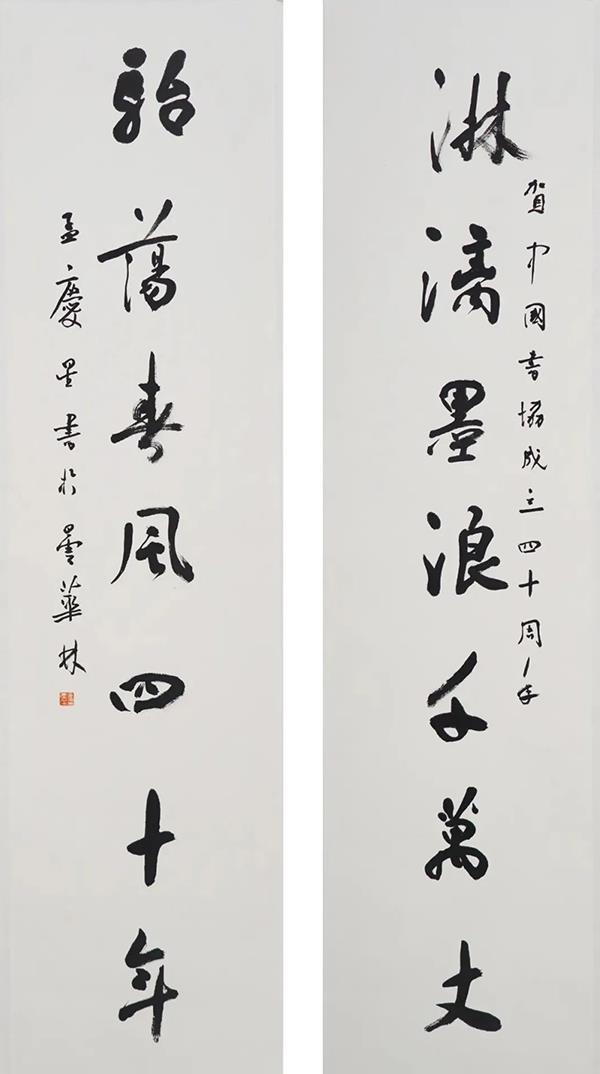 賀中國書協成立四十周年
淋漓墨浪千萬丈
駘蕩春風四十年
孟慶星書於曇華林